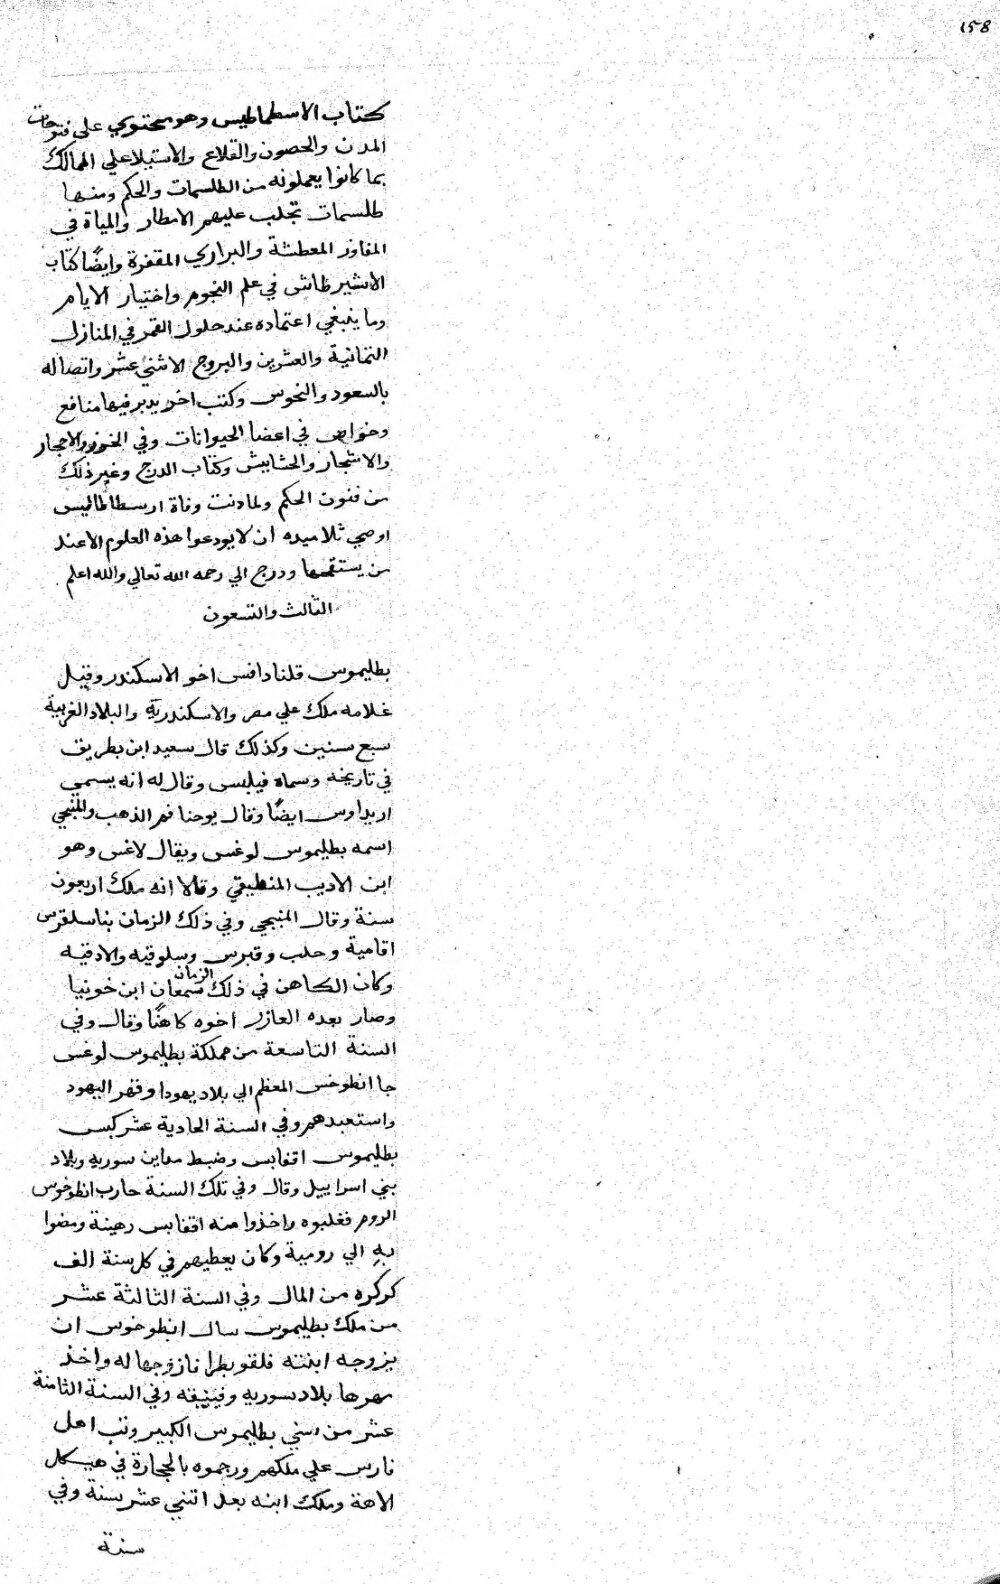 158
كتاب الاسطماطيس وهو محتوي على فتوحات
المدن والحصون والقلاع والاستيلا علي الممالك
بما كانوا يعملونه من الطلسمات والحكم ومنها
طلسمات تجلب عليهم الامطار والمياة في
المفاوز المعطشة والبراري المقفرة وايضًا كتاب
الاشيرطاش في علم النجوم واختيار الايام
وما ينبغي اعتماده عند حلول القمر في المنازل
الثمانية والعشرين والبروج الاثني عشر واتصاله
بالسعود والنحوس وكتب اخر يدبر فيها منافع
وخواص في اعضا الحيوانات وفي الخرز والاحجار
والاشجار والحشايش وكتاب الدرج وغير ذلك
من فنون الحكم ولما دنت وفاة ارسطاطاليس
اوصي تلاميده ان لا يودعوا هذه العلوم الا عند
من يستقمها ودرج الي رحمه الله تعالي والله اعلم
الثالث والتسعون
بطليموس قلنادافس اخو الاسكندر وقيل
غلامه ملك علي مصر والاسكندرية والبلاد الغربية
سبع سنين وكذلك قال سعيد ابن بطريق
في تاريخه وسماه فيلبس وقال له انه يسمي
اريداوس ايضًا وقال يوحنا فم الذهب والمنبجي
اسمه بطليموس لوغس ويقال لاغس وهو
ابن الاديب المنطيقي وقالا انه ملك اربعون
سنة وقال المنبجي وفي ذلك الزمان بنا سلقوس
افامية وحلب وقبرس وسلوقيه والادقيه
وكان الكاهن في ذلك الزمان سمعان ابن خونيا
وصار بعده العازر اخوه كاهنًا وقال وفي
السنة التاسعة من مملكة بطليموس لوغس
جا انطوخس المعظم الي بلاد يهودا وقهر اليهود
واستعبدهم وفي السنة الحادية عشر كبس
بطليموس اقفابس وضبط مداين سوريه وبلاد
بني اسراييل وقال وفي تلك السنة حارب انطوخوس
الروم فغلبوه واخذوا منه اقفابس رهينة ومضوا
به الي رومية وكان يعطيهم في كل سنة الف
كركره من المال وفي السنة الثالثة عشر
من ملك بطليموس سال انطوخوس ان
يزوجه ابنته قلقوبطرا فازوجها له واخذ
مهرها بلاد سوريه وفينيقه وفي السنة الثامنة
عشر من سني بطليموس الكبير وثب اهل
فارس علي ملكهم ورجموه بالحجارة في هيكل
الاهة وملك ابنه بعد اثني عشر سنة وفي
سنة